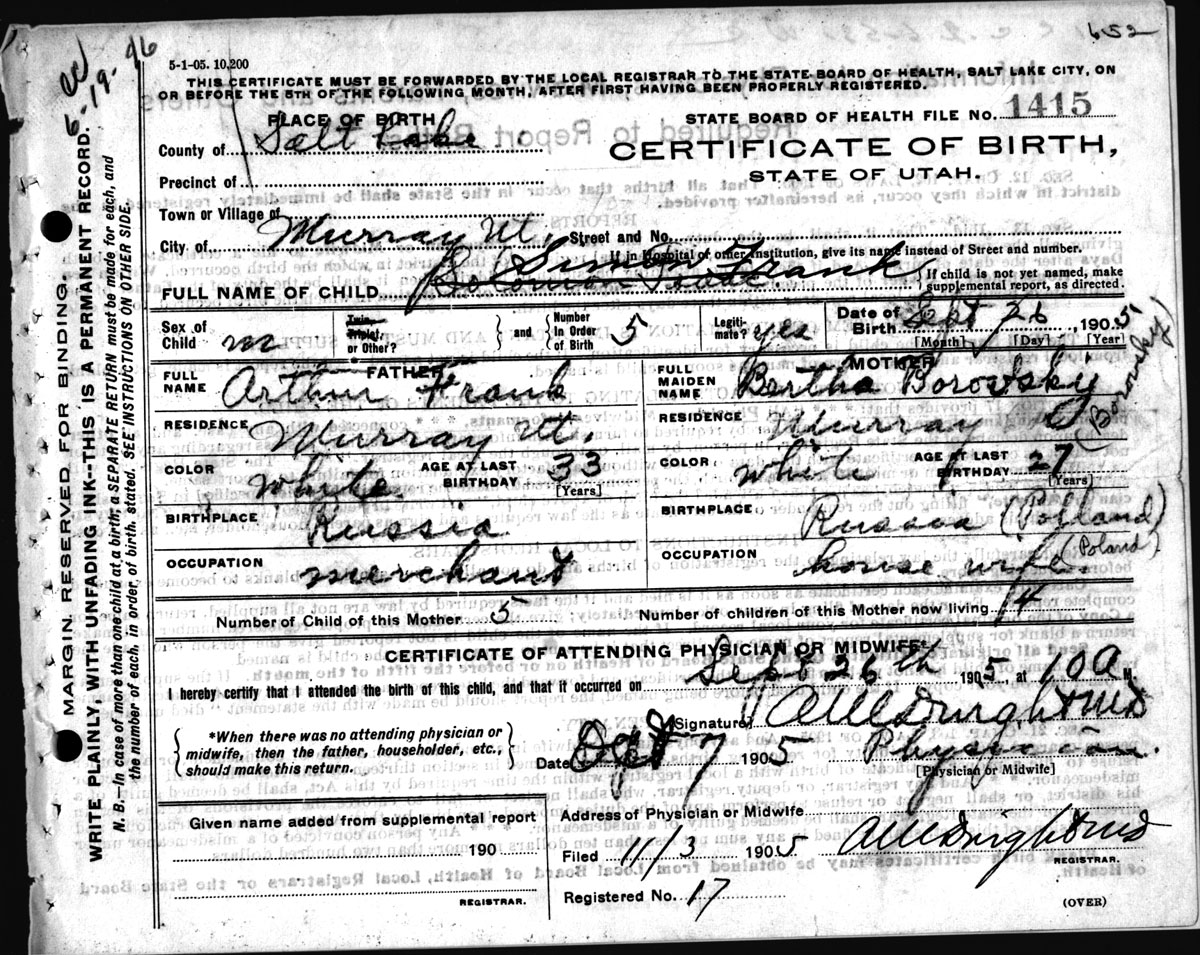 652
ec
5-19-46
5-1-05. 10,200
THIS CERTIFICATE MUST BE FORWARDED BY THE LOCAL REGISTRAR TO THE STATE BOARD OF HEALTH, SALT LAKE CITY, ON
OR BEFORE THE 5TH OF THE FOLLOWING MONTH, AFTER FIRST HAVING BEEN PROPERLY REGISTERED.
PLACE OF BIRTH
STATE BOARD OF HEALTH FILE NO. 1415
County of Salt Lake
CERTIFICATE OF BIRTH,
STATE OF UTAH.
Precinct of
Town or Village of
City of Murray Ut, Street and No.
If in Hospital or other Institution, give its name instead of Street and number.
Simon Frank
FULL NAME OF CHILD Solomon Frank
If child is not yet named, make supplemental report, as directed.
Sex of Child m
Twin, Triplet, or Other? and Number In Order of Birth 5
Legitimate? yes
Date of Birth Sept 26, 1905
[Month] [Day] [Year]
FATHER
MOTHER
FULL NAME Arthur Frank
FULL MAIDEN NAME Bertha Borovsky
(Borowsky)
RESIDENCE Murray Ut.
RESIDENCE Murray
COLOR White AGE AT LAST BIRTHDAY 33 [Years]
COLOR White AGE AT LAST BIRTHDAY 27 [Years]
BIRTHPLACE Russia
BIRTHPLACE Russia (Polland)
(Poland)
OCCUPATION merchant
OCCUPATION house wife
Number of Child of this Mother 5
Number of children of this Mother now living 4
CERTIFICATE OF ATTENDING PHYSICIAN OR MIDWIFE*
I hereby certify that I attended the birth of this child, and that it occurred on Sept 26th 1905 at 10 A M.
(Signature)
*When there was no attending physician or midwife, then the father, householder, etc., should make this return.
Date Oct 7 1905 Physician.
[Physician or Midwife]
Given name added from supplemental report
190
REGISTRAR.
Address of Physician or Midwife
Filed 11/3 1905
REGISTRAR.
Registered No. 17
(OVER)
MARGIN RESERVED FOR BINDING.
WRITE PLAINLY, WITH UNFADING INK--THIS IS A PERMANENT RECORD.
N. B.--In case of more than one child at a birth, a SEPARATE RETURN must be made for each, and
the number of each, in order, of birth, stated. SEE INSTRUCTIONS ON OTHER SIDE.